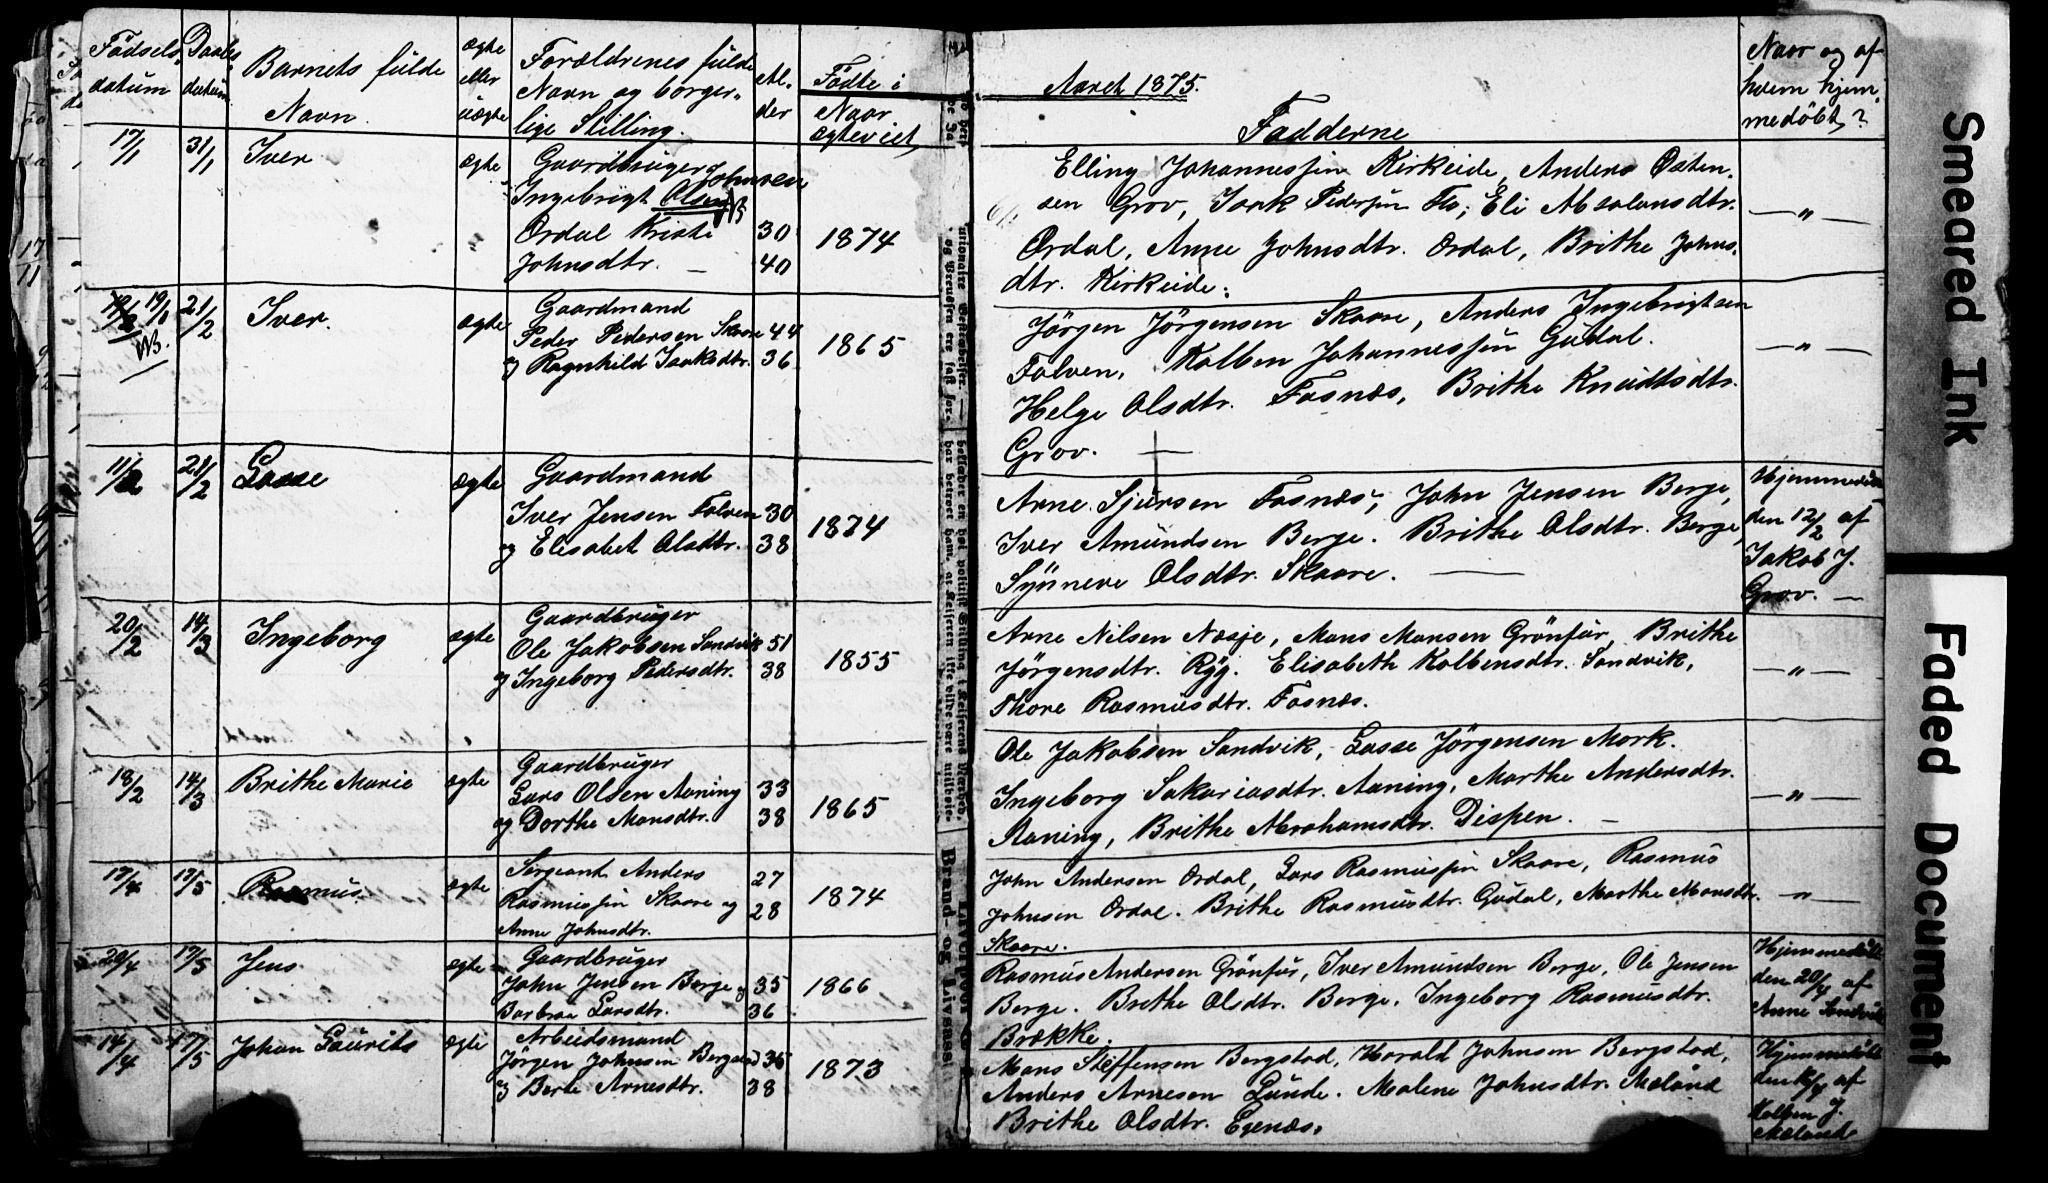 Fødsels
datum
Daabs
datum
Barnets fulde
Navn.
ægte
eller
uægte
Forældrenes fulde
Navn og borger-
lige Stilling.
Al-
der
Fødte i
Naar
ægteviet
Aaret 1875.
Fadderne
Naar og af
hvem hjem-
medøbt?
17/1 31/1 Iver ægte
Gaardbruger
Johnsen
Ingebrigt Olsen
Ordal Kriste 30
Johnsdtr. — 40
1874
Elling Johannessen Kirkeide, Anders Østen-
sen Grov, Isak Pedersen Flo, Eli Absalonsdtr.
Ordal, Anne Johnsdtr. Ordal, Brithe Johns-
dtr. Kirkeide.
—„—
19/1 21/2 Iver. ægte
NB.
Gaardmand
Peder Pedersen Skaare 44
og Ragnhild Isaksdtr. 36
1865
Jørgen Jørgensen Skaare, Anders Ingebrigtsen
Folven, Kolben Johannessen Gudal.
Helge Olsdtr. Fosnæs, Brithe Knudtsdtr.
Grov. —
—„—
11/2 21/2 Lasse ægte
Gaardmand
Iver Jensen Folven 30
og Elisabet Olsdtr. 38
1874
Arne Sjursen Fosnæs, John Jensen Berge,
Iver Amundsen Berge. Brithe Olsdtr. Berge,
Synneve Olsdtr. Skaare. —
Hjemmedøbt
den 12/2 af
Jakob J.
Grov. —
20/2 14/3 Ingeborg ægte
Gaardbruger
Ole Jakobsen Sandvik 51
og Ingeborg Pedersdtr. 38
1855
Arne Nilsen Næsje, Mons Monsen Grønfur, Brithe
Jørgensdtr. Ryg. Elisabeth Kolbensdtr. Sandvik,
Thore Rasmusdtr. Fosnæs.
—„—
18/2 14/3 Brithe Marie ægte
Gaardbruger
Lars Olsen Aaning 33
og Dorthe Monsdtr. 38
1865
Ole Jakobsen Sandvik, Lasse Jørgensen Mork.
Ingeborg Sakariasdtr. Aaning, Marthe Andersdtr.
Aaning, Brithe Abrahamsdtr. Dispen. —
—„—
17/4 17/5 Rasmus. ægte
Sergeant Anders 27
Rasmussen Skaare og 28
Anne Johnsdtr.
1874
John Andersen Ordal, Lars Rasmussen Skaare, Rasmus
Johnsen Ordal. Brithe Rasmusdtr. Gudal, Marthe Monsdtr.
Skaare.
—„—
20/4 17/5 Jens. ægte
Gaardbruger
John Jensen Berge og 35
Barbraa Larsdtr. 36
1866
Rasmus Andersen Grønfur, Iver Amundsen Berge, Ole Jensen
Berge. Brithe Olsdtr. Berge, Ingeborg Rasmusdtr.
Brække.
Hjemmedøbt
den 20/4 af
Anne Sandvik
14/4 17/5 Johan Laurits ægte
Arbeidsmand
Jørgen Johnsen Bergstad 35
og Berte Arnesdtr. 38
1873
Mons Steffensen Bergstad, Harald Johnsen Bergstad,
Anders Arnesen Lunde. Malene Johnsdtr. Mæland
Brithe Olsdtr. Egenæs.
Hjemmedøbt
af
Kolben J.
Mæland
Smeared Ink
Faded Document